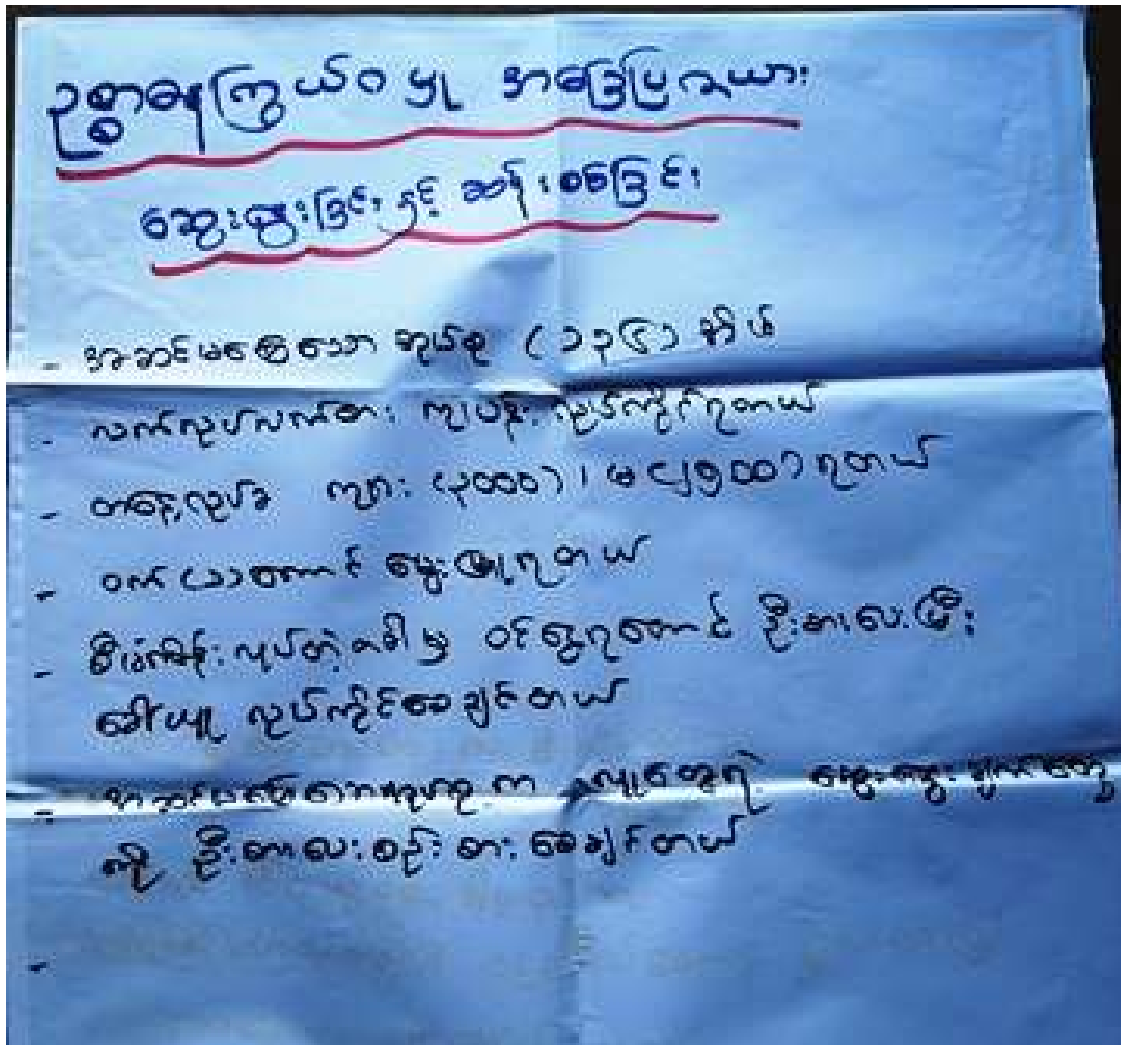 ဥစ္စာဓနကြွယ်ဝမှု အခြေပြဇယား
ဆွေးနွေးခြင်းနှင့် ဆန်းစစ်ခြင်း
- အဆင်မပြေသော အုပ်စု (၁၃၆) အိမ်
- လက်လုပ်လက်စား ကျပန်းလုပ်ကိုင်ရတယ်
- တနေ့လုပ်ခ ကျား (၃၀၀၀) ၊ မ (၂၅၀၀) ရတယ်
- ဝက် (၁) ကောင် မွေးမြူရတယ်
- စီမံကိန်းလုပ်တဲ့အခါမှ ဝင်ငွေရအောင် ဦးစားပေးပြီး
ခေါ်ယူ လုပ်ကိုင်စေချင်တယ်
- အဆင်မပြေသောအုပ်စုက လူတွေရဲ့ ဆွေးနွေးချက်တွေ
ကို ဦးစားပေးစဉ်းစားစေချင်တယ်
-